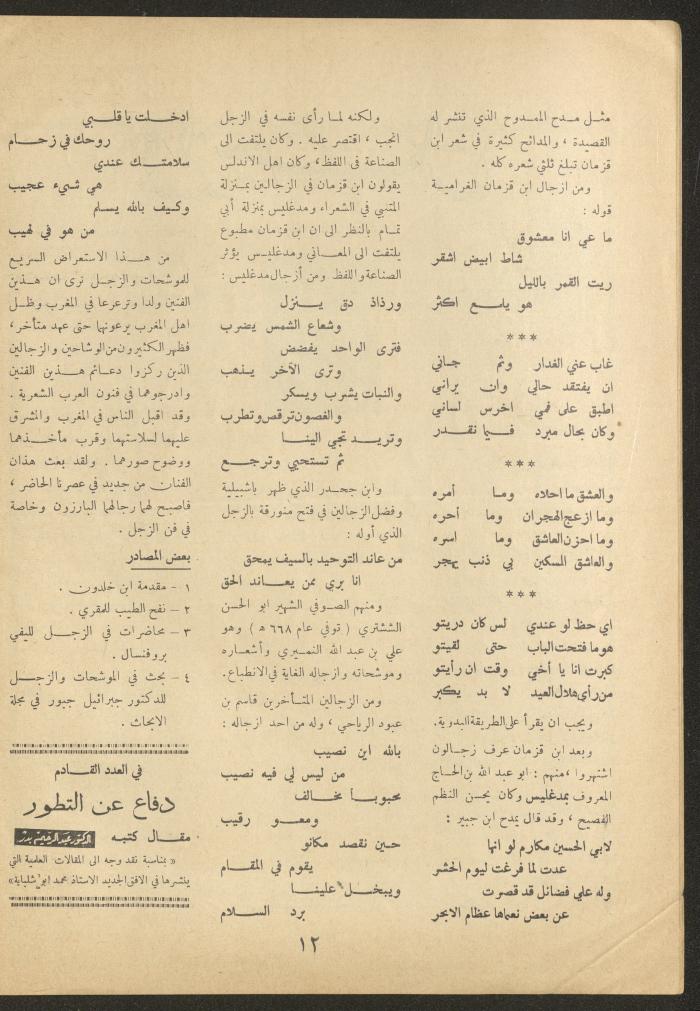 مثل مدح الممدوح الذي تنشر له
القصيدة ، والمدائح كثيرة في شعر ابن
قزمان تبلغ ثلثي شعره كله .
ومن ازجال ابن قزمان الغرامية
قوله :
ما عي انا معشوق
شاط ابيض اشقر
ريت القمر بالليل
هو يامع اكثر
***
غاب عني الغدار وثم جاني
ان يفتقد حالي وان يراني
اطبق على فمي اخرس لساني
وكان بحال مبرد فيا نقدر
***
والعشق ما احلاه وما أمره
وما ازعج الهجران وما أحره
وما احزن العاشق وما اسره
والعاشق المسكين بي ذنب يهجر
***
اي حظ لو عندي لس كان دريتو
هو ما فتحت الباب حتى لقيتو
كبرت انا يا أخي وقت ان رأيتو
من رأى هلال العيد لا بد يكبر
ويجب ان يقرأ على الطريقة البدوية.
وبعد ابن قزمان عرف زجالون
اشتهروا ، منهم : ابو عبد الله بن الحاج
المعروف بمدغليس وكان يحسن النظم
الفصيح ، وقد قال يمدح ابن جبير :
لابي الحسين مكارم لو انها
عدت لما فرغت ليوم الحشر
وله علي فضائل قد قصرت
عن بعض نعماها عظام الابحر
ولكنه لما رأى نفسه في الزجل
انجب ، اقتصر عليه . وكان يلتفت الى
الصناعة في اللفظ، وكان اهل الاندلس
يقولون ابن قزمان في الزجالين بمنزلة
المتنبي في الشعراء ومدغليس بمنزلة أبي
تمام بالنظر الى ان ابن قزمان مطبوع
يلتفت الى المعاني ومدغليس يؤثر
الصناعة واللفظ ومن أزجال مدغليس :
ورذاذ دق ينزل
وشعاع الشمس يضرب
فترى الواحد يفضض
وترى الآخر يذهب
والنبات يشرب ويسكر
والغصون ترقص وتطرب
وتريد تجي الينا
ثم تستحيي وترجع
وابن جحدر الذي ظهر باشبيلية
وفضل الزجالين في فتح منورقة بالزجل
الذي أوله :
من عاند التوحيد بالسيف يمحق
انا بري ممن يعاند الحق
ومنهم الصوفي الشهير ابو الحسن
الششتري ( توفي عام ٦٦٨ ه ) وهو
علي بن عبد الله النميري وأشعاره
وموشحاته وازجاله الغاية في الانطباع.
ومن الزجالين المتأخرين قاسم بن
عبود الرياحي ، وله من احد ازجاله :
بالله اين نصيب
من ليس لي فيه نصيب
محبوبا مخالف
ومعو رقيب
حين نقصد مكانو
يقوم في المقام
ويبخل علينا
برد السلام
ادخلت يا قلبي
روحك في زحام
سلامتك عندي
هي شيء عجيب
وكيف بالله يسلم
من هو في لهيب
من هذا الاستعراض السريع
للموشحات والزجل نرى ان هذين
الفنين ولدا وترعرعا في المغرب وظل
اهل المغرب يرعونهما حتى عهد متأخر ،
فظهر الكثيرون من الوشاحين والزجالين
الذين ركزوا دعائم هذين الفنين
وادرجوهما في فنون العرب الشعرية .
وقد اقبل الناس في المغرب والمشرق
عليهما لسلاستهما وقرب مأخذهما
ووضوح صورهما . ولقد بعث هذان
الفنان من جديد في عصرنا الحاضر ،
فاصبح لهما رجالهما البارزون وخاصة
في فن الزجل .
بعض المصادر
١ - مقدمة ابن خلدون .
٢ - نفح الطيب للمقري .
٣ - محاضرات في الزجل لليفي
بروفنسال .
٤ - بحث في الموشحات والزجل
للدكتور جبرائيل جبور في مجلة
الابحاث .
في العدد القادم
دفاع عن التطور
مقال كتبه الدكتور عبد الرحيم بدر
« بمناسبة نقد وجه الى المقالات العلمية التي
ينشرها في الافق الجديد الاستاذ محمد ابو شلباية»
١٢